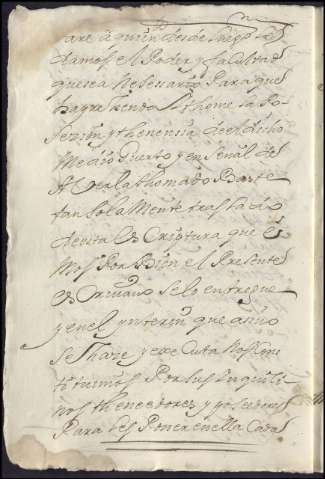 are a quien desde luego les
damos el Poder y facultad
que sea nesesario Para que
haprehenda i thome la Po-
sesion y thenensia de el dicho
Medio Puerto y en señal de
averla thomado Baste
tan solamente traslado
de esta escriptura que es
Mos Por Bien el Presente
escrivano se lo entregue
y en el ynterin que a uno
se Thaze y executa Nos cons
tituimos Por sus ynquili
nos thenedores y poseedores
Para les Poner en ella Cada